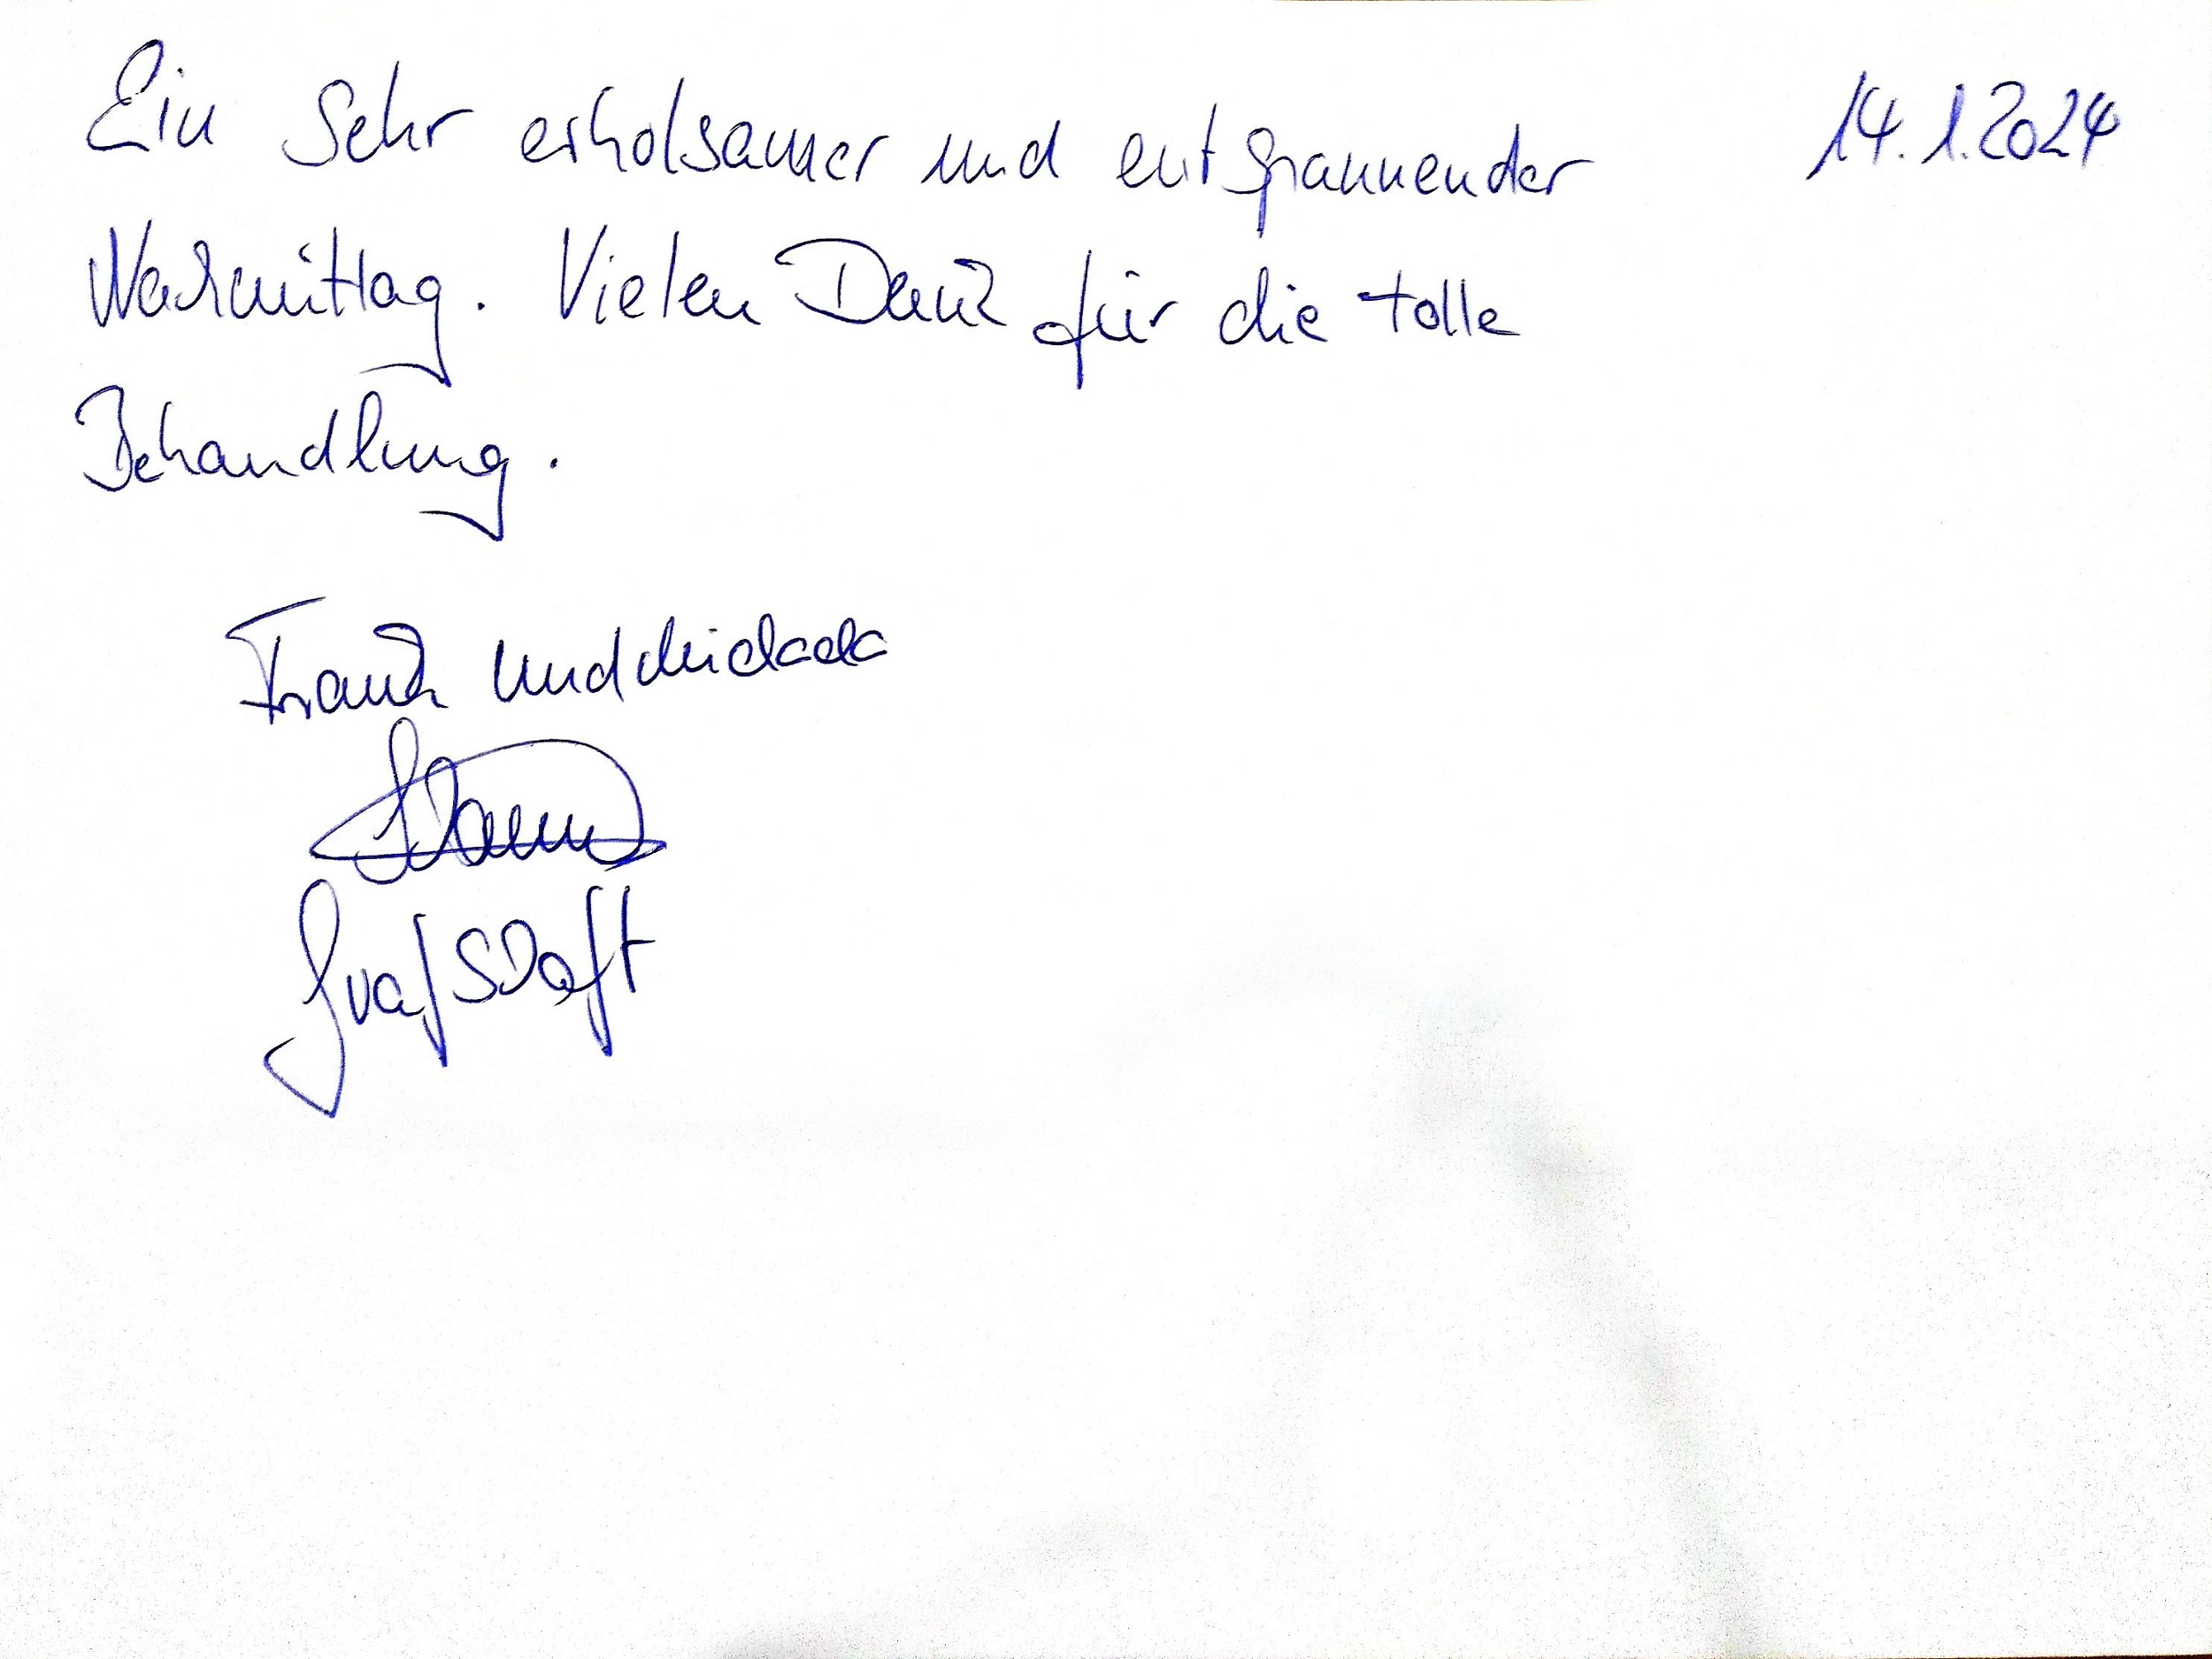 Ein sehr erholsamer und entspannender 14.1.2024
Nachmittag. Vielen Dank für die tolle
Behandlung.
Frank und